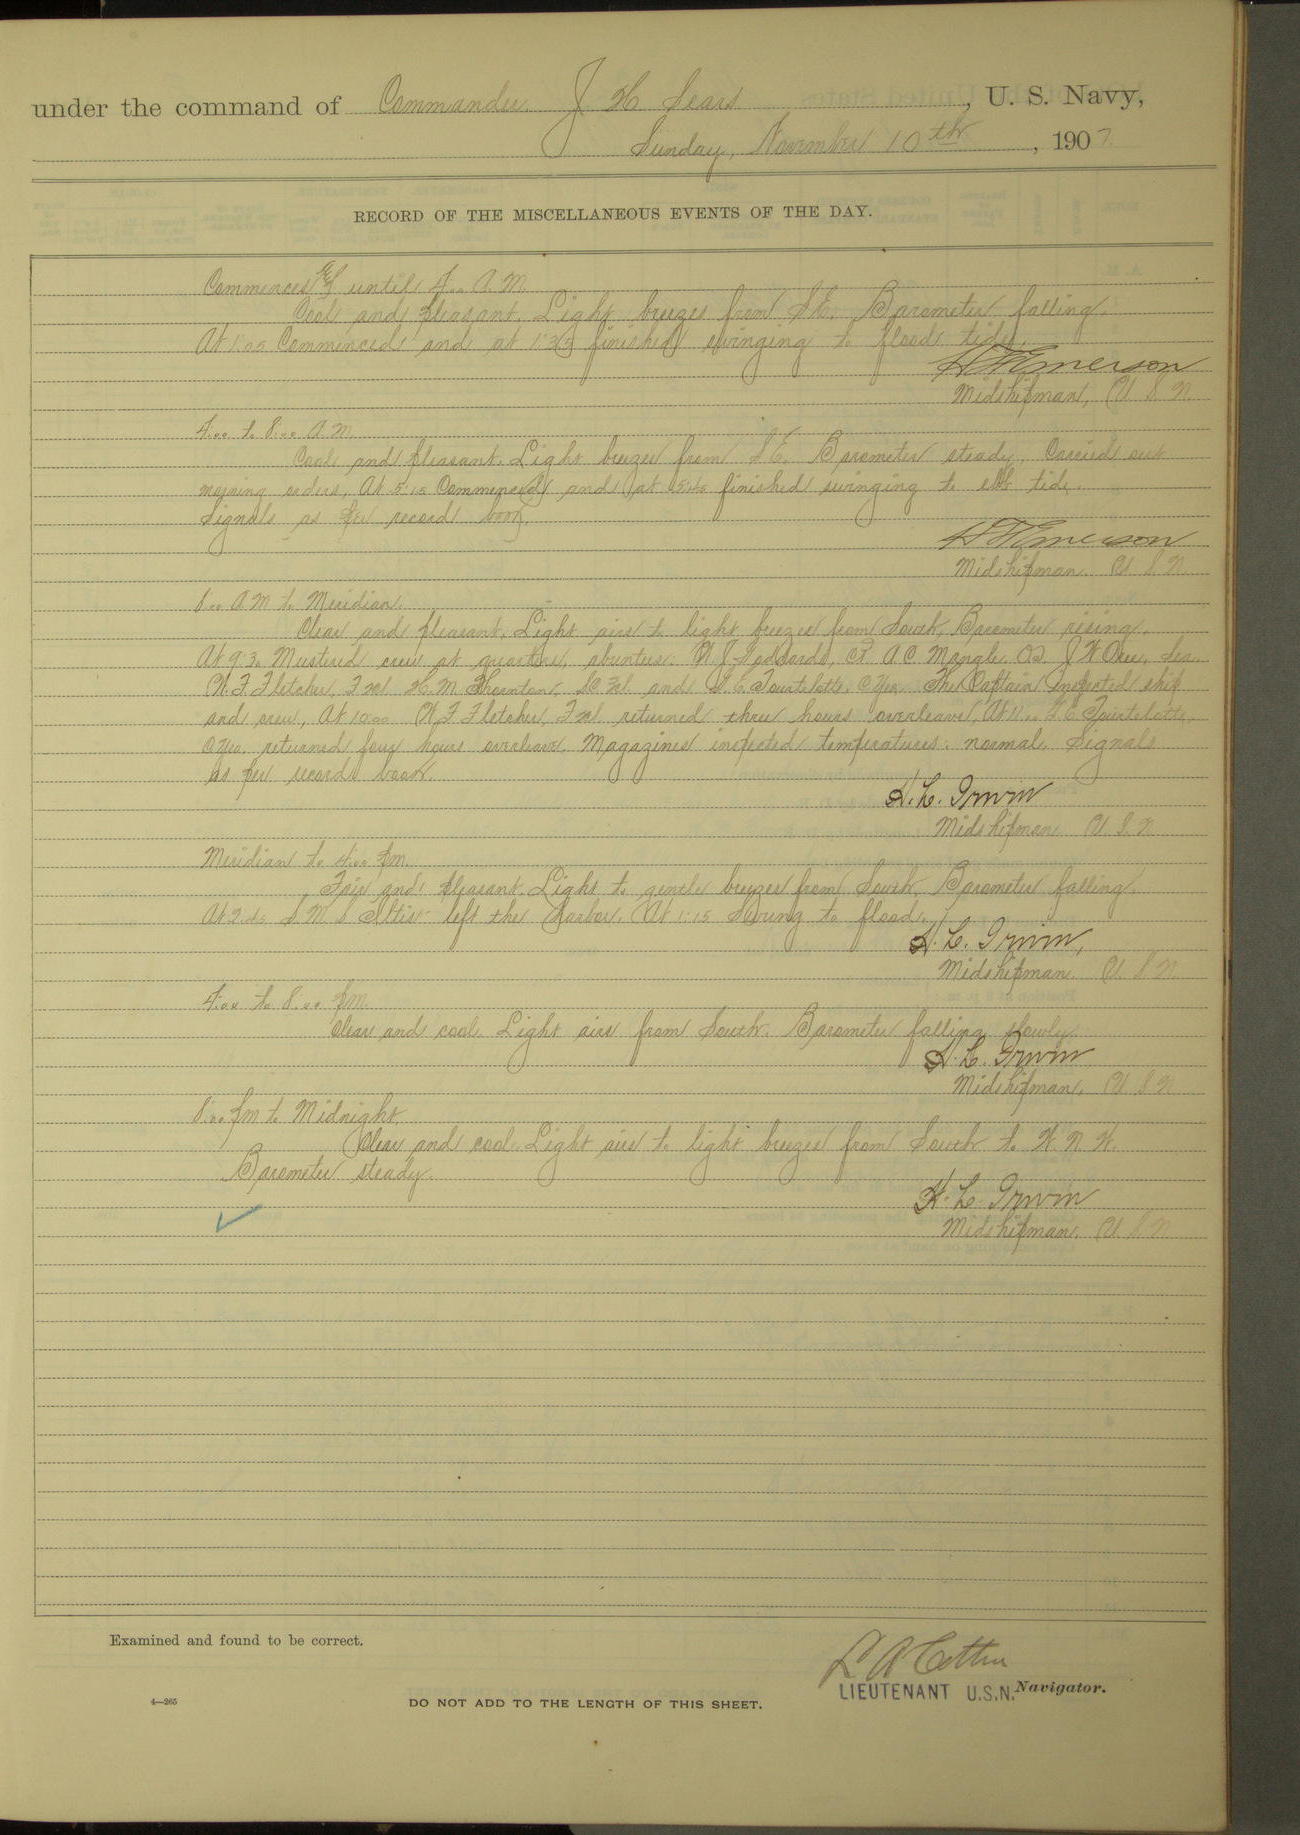 under the command of Commander J H Sears, U. S. Navy,
Sunday, November 10th, 1907.
RECORD OF THE MISCELLANEOUS EVENTS OF THE DAY.
Commences & until 4:00 A M
Cool and pleasant. Light breezes from S E. Barometer falling.
At 1:05 Commenced and at 1:35 finished swinging to flood tide.
Emerson
Midshipman, U S N
4:00 to 8:00 A M
Cool and pleasant. Light breezes from S E. Barometer steady. Carried out
morning orders. At 5:15 Commenced and at finished swinging to ebb tide.
Signals as per record book.
Emerson
Midshipman. U S N
8:00 A M to Meridian.
Clear and pleasant. Light airs to light breezes from South. Barometer rising.
At 9:30 Mustered crew at quarters, absentees: J Goddard, A C Mangle, J W
W. F. Fletcher, H. M. Thornton, and Tourtelotte. The Captain inspected ship
and crew. At 10:00 W F Fletcher, returned three hours overleave. At 11:00 Tourtelotte,
returned four hours overleave. Magazines inspected temperatures: normal. Signals
as per record book.
L. Irwin
Midshipman U S N
Meridian to 4:00 pm.
Fair and pleasant. Light to gentle breezes from South. Barometer falling
At left the harbor. At 1:15 Swung to flood.
L. Irwin,
Midshipman. U S N
4:00 to 8:00 pm.
Clear and cool. Light airs from South. Barometer falling slowly
L. Irwin
Midshipman. U S N
8:00 pm to Midnight
Clear and cool. Light airs to light breezes from South to W. N. W.
Barometer steady.
L. Irwin
Midshipman. U S N
Examined and found to be correct.
LIEUTENANT U.S.N. Navigator.
4—265
DO NOT ADD TO THE LENGTH OF THIS SHEET.